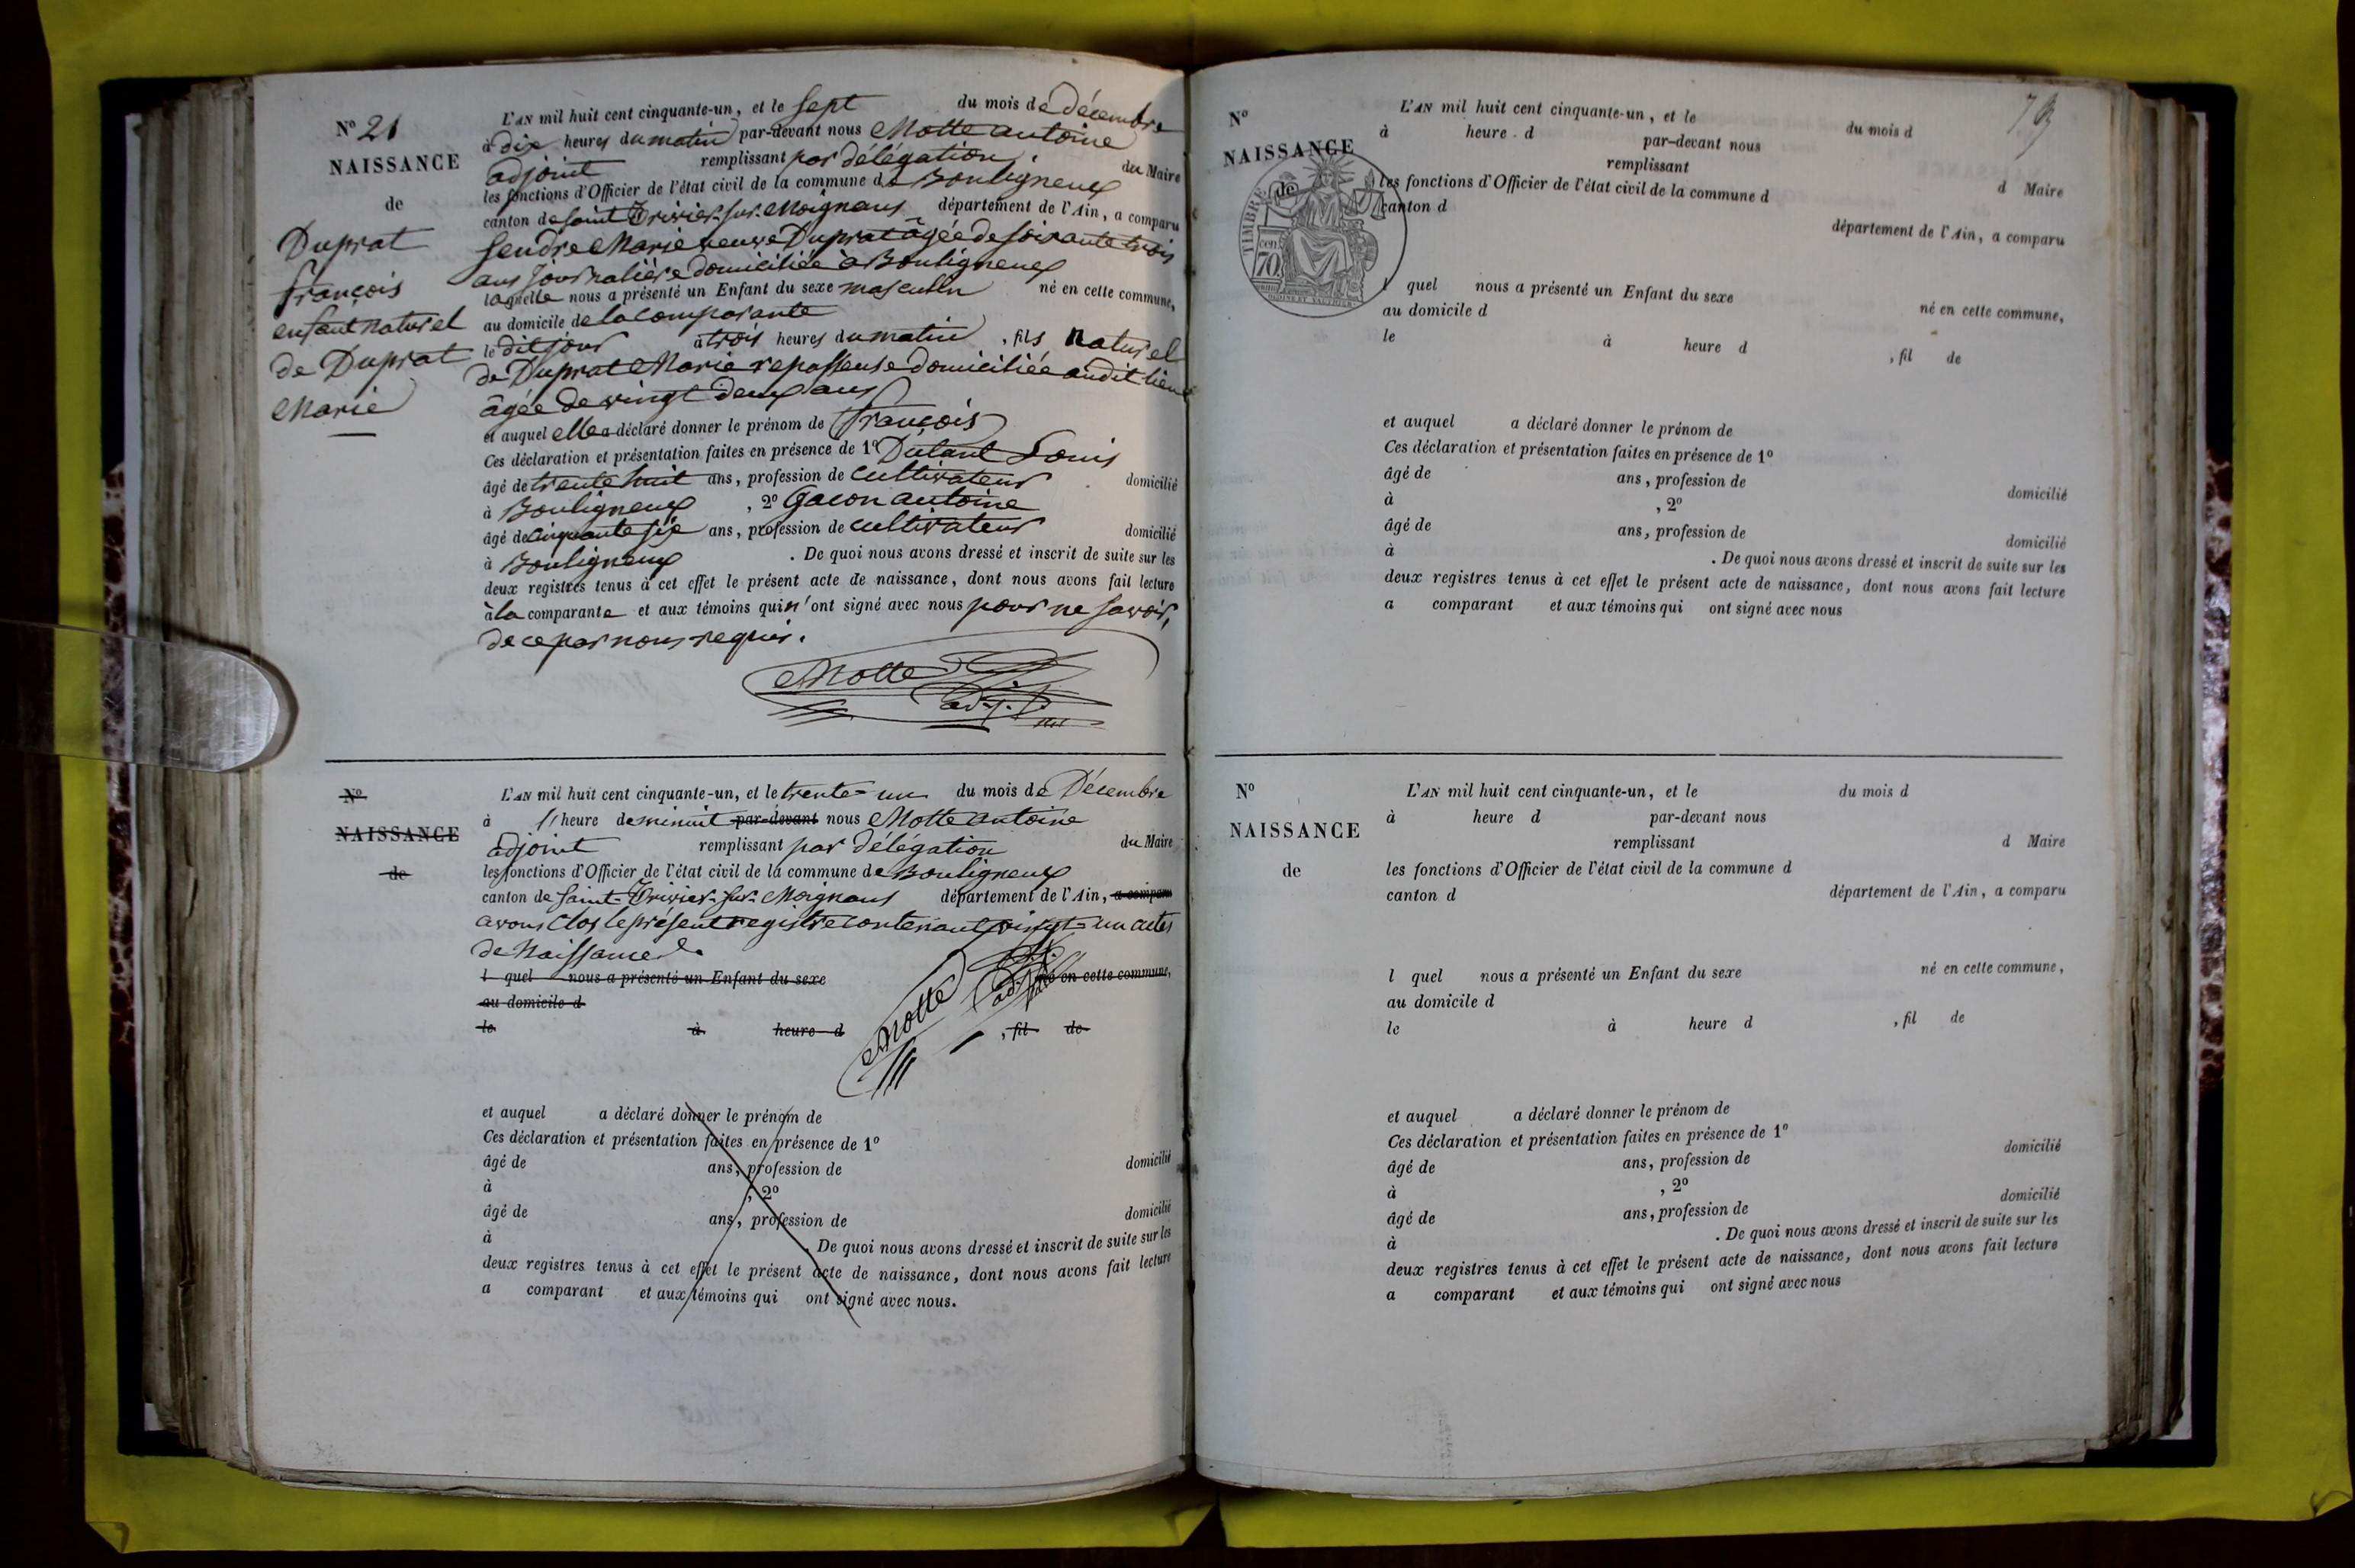 N° 21
NAISSANCE
de
Duprat
françois
enfant naturel
de Duprat
Marie
L'AN mil huit cent cinquante-un, et le sept du mois de décembre
à dix heures du matin par-devant nous Motte antoine
adjoint remplissant par délégation du Maire
les fonctions d'Officier de l'état civil de la commune de Bouligneux
canton de saint Trivier-sur-Moignans département de l'Ain, a comparu
Marie veuve Duprat âgée de soixante trois
ans journalière domiciliée à Bouligneux
laquelle nous a présenté un Enfant du sexe masculin né en cette commune,
au domicile de la comparante
le dit jour à trois heures du matin, fils naturel
de Duprat Marie repasseuse domiciliée audit lieu
âgée de vingt deux ans
et auquel elle a déclaré donner le prénom de françois
Ces déclaration et présentation faites en présence de 1° Louis
âgé de trente huit ans, profession de cultivateur domicilié
à Bouligneux, 2° Gacon antoine
âgé de cinquante six ans, profession de cultivateur domicilié
à Bouligneux. De quoi nous avons dressé et inscrit de suite sur les
deux registres tenus à cet effet le présent acte de naissance, dont nous avons fait lecture
à la comparante et aux témoins qui n'ont signé avec nous pour ne savoir,
de ce par nous requis.
Motte
adj.
N°
NAISSANCE
de
L'AN mil huit cent cinquante-un, et le trente-un du mois de Décembre
à heure de minuit par-devant nous Motte antoine
adjoint remplissant par délégation du Maire
les fonctions d'Officier de l'état civil de la commune de Bouligneux
canton de saint-Trivier-sur-Moignans département de l'Ain, a comparu
avons clos le présent registre contenant vingt-un actes
de Naissance
l quel nous a présenté un Enfant du sexe né en cette commune,
au domicile d
le à heure d , fil de
Motte
et auquel a déclaré donner le prénom de
Ces déclaration et présentation faites en présence de 1°
âgé de ans, profession de domicilié
à , 2°
âgé de ans, profession de domicilié
à . De quoi nous avons dressé et inscrit de suite sur les
deux registres tenus à cet effet le présent acte de naissance, dont nous avons fait lecture
a comparant et aux témoins qui ont signé avec nous.
N°
NAISSANCE
de
TIMBRE
70
cen
L'AN mil huit cent cinquante-un, et le du mois d
à heure d par-devant nous
remplissant d Maire
les fonctions d'Officier de l'état civil de la commune d
canton d département de l'Ain, a comparu
l quel nous a présenté un Enfant du sexe né en cette commune,
au domicile d
le à heure d , fil de
et auquel a déclaré donner le prénom de
Ces déclaration et présentation faites en présence de 1°
âgé de ans, profession de domicilié
à , 2°
âgé de ans, profession de domicilié
à . De quoi nous avons dressé et inscrit de suite sur les
deux registres tenus à cet effet le présent acte de naissance, dont nous avons fait lecture
a comparant et aux témoins qui ont signé avec nous
N°
NAISSANCE
de
L'AN mil huit cent cinquante-un, et le du mois d
à heure d par-devant nous
remplissant d Maire
les fonctions d'Officier de l'état civil de la commune d
canton d département de l'Ain, a comparu
l quel nous a présenté un Enfant du sexe né en cette commune,
au domicile d
le à heure d , fil de
et auquel a déclaré donner le prénom de
Ces déclaration et présentation faites en présence de 1°
âgé de ans, profession de domicilié
à , 2°
âgé de ans, profession de domicilié
à . De quoi nous avons dressé et inscrit de suite sur les
deux registres tenus à cet effet le présent acte de naissance, dont nous avons fait lecture
a comparant et aux témoins qui ont signé avec nous